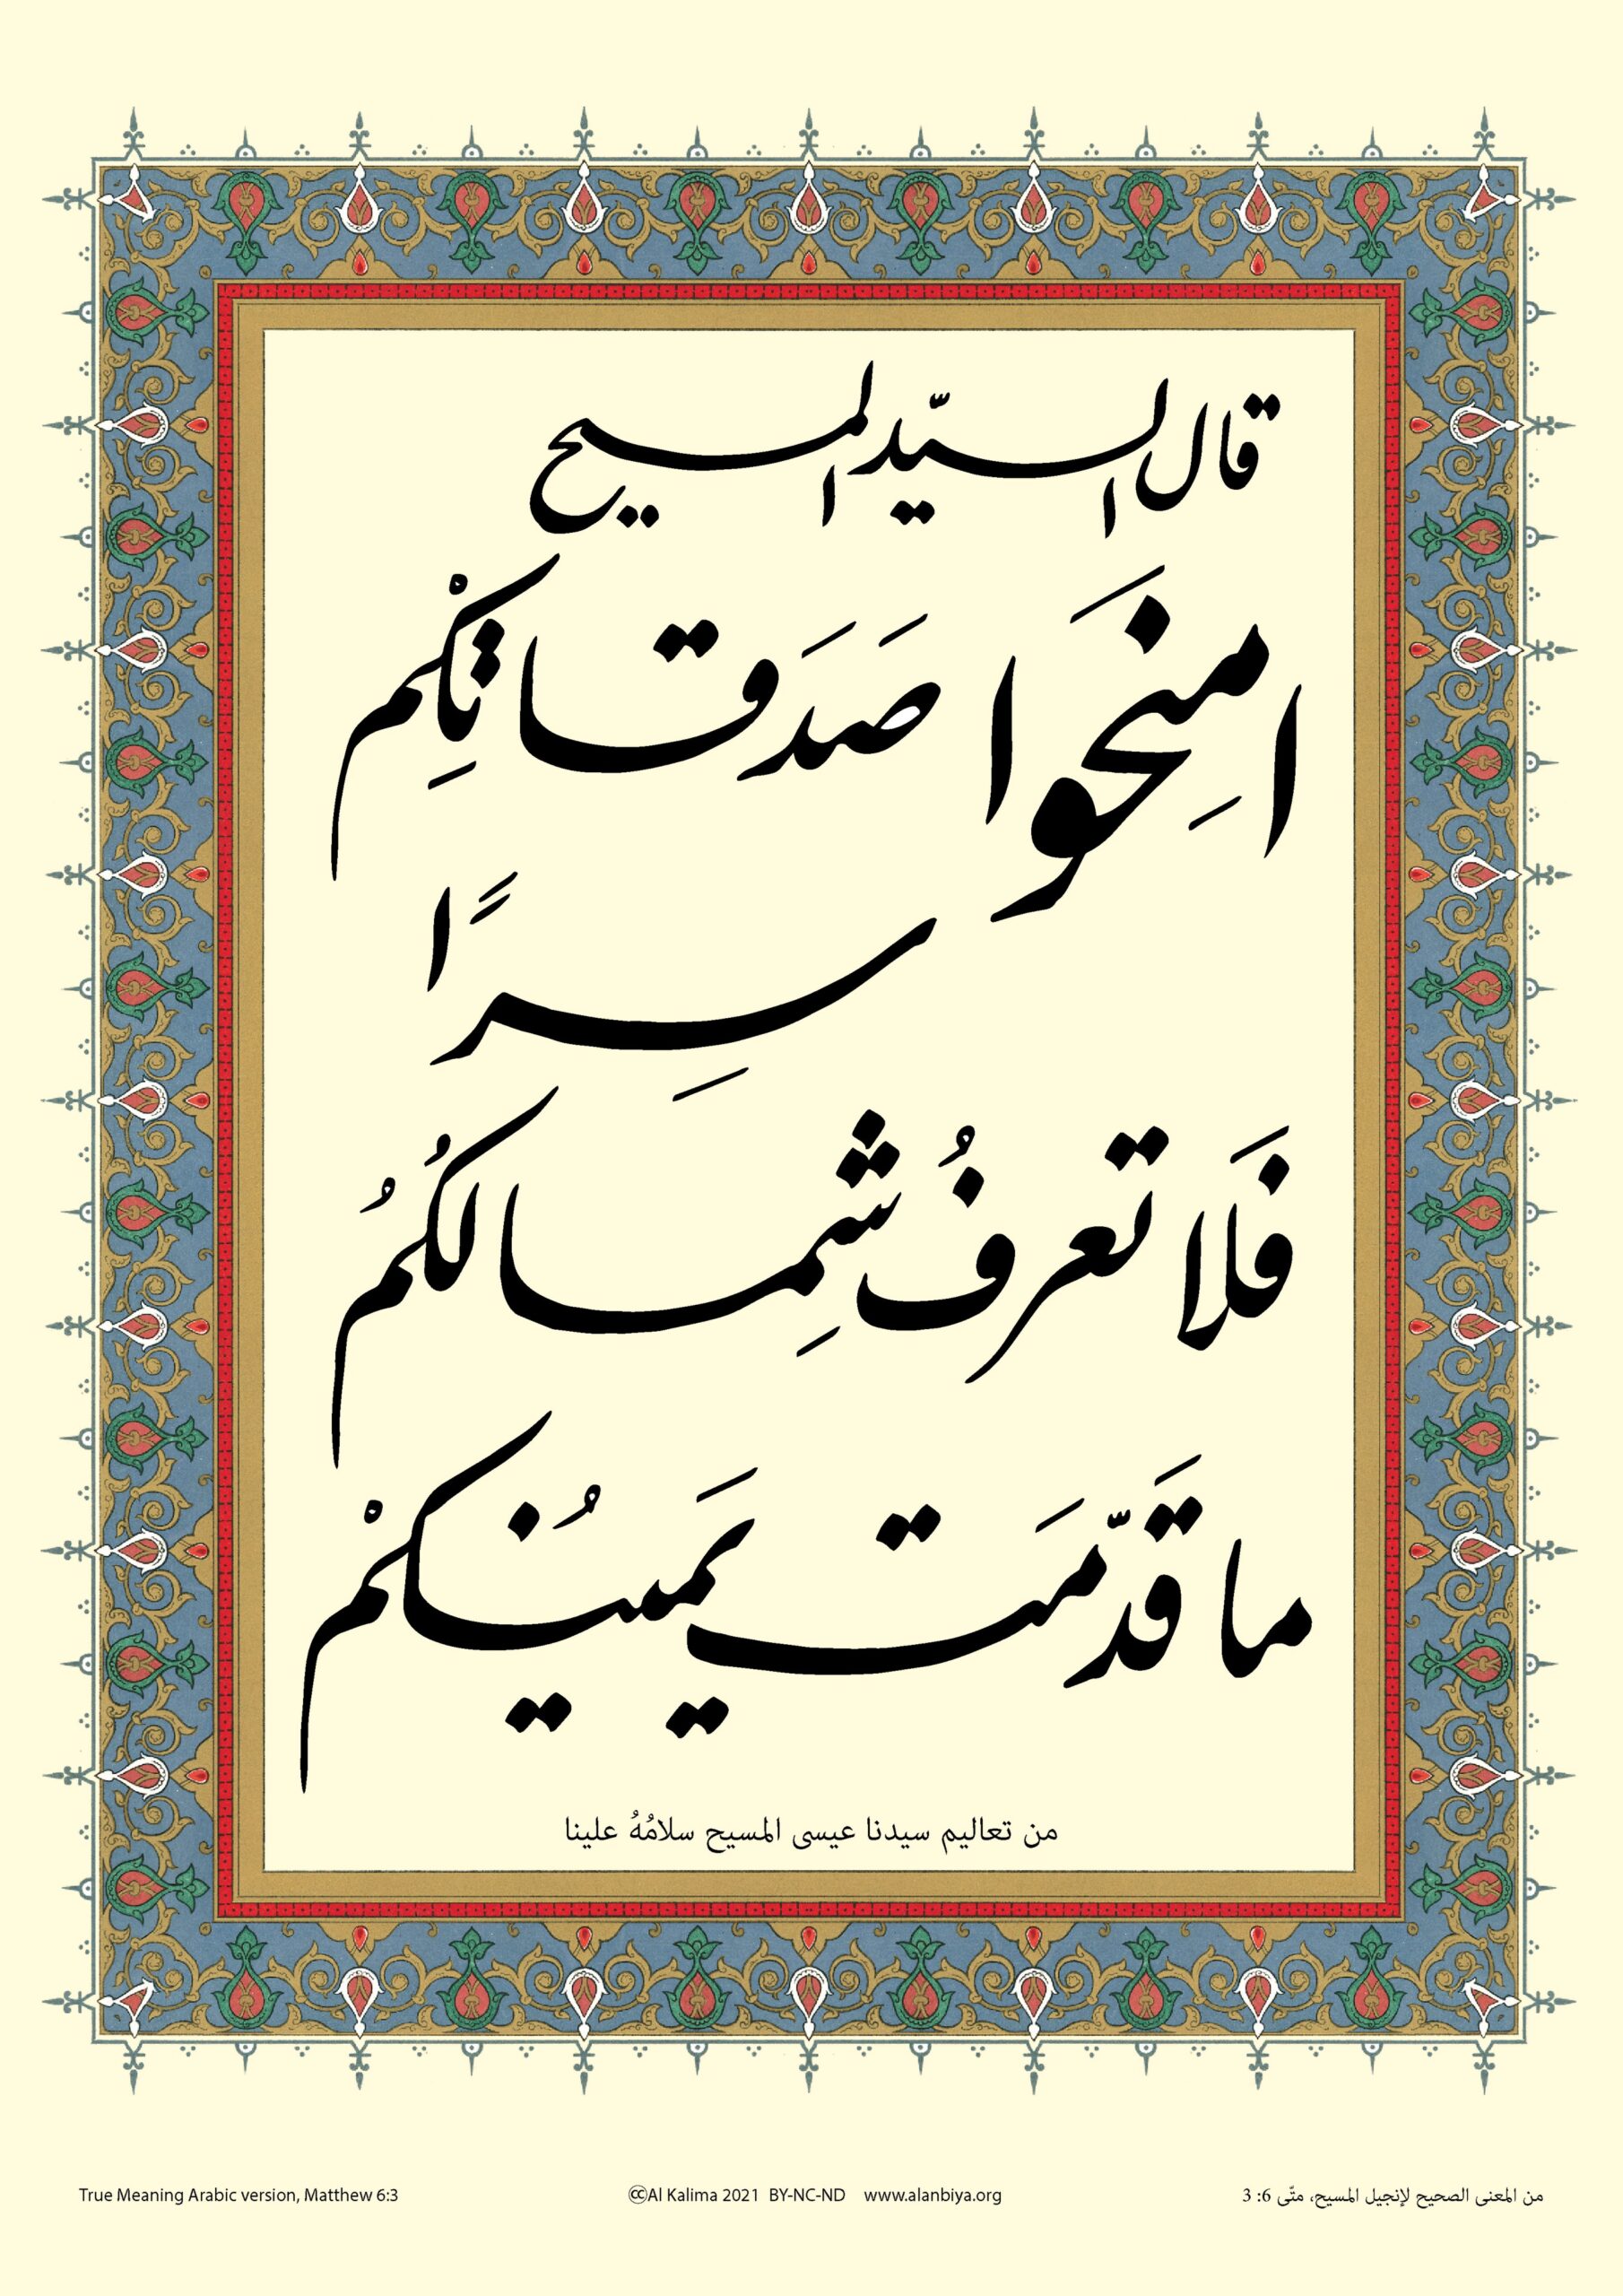 قال السيّد المسيح
امنَحوا صَدَقاتِكمْ
سِرًا
فَلا تعرفُ شِمالكُمُ
ما قَدّمَت يَمينُكمْ
من تعاليم سيدنا عيسى المسيح سلامُهُ علينا
True Meaning Arabic version, Matthew 6:3
🅭Al Kalima 2021 BY-NC-ND www.alanbiya.org
من المعنى الصحيح لإنجيل المسيح، متّى 6: 3